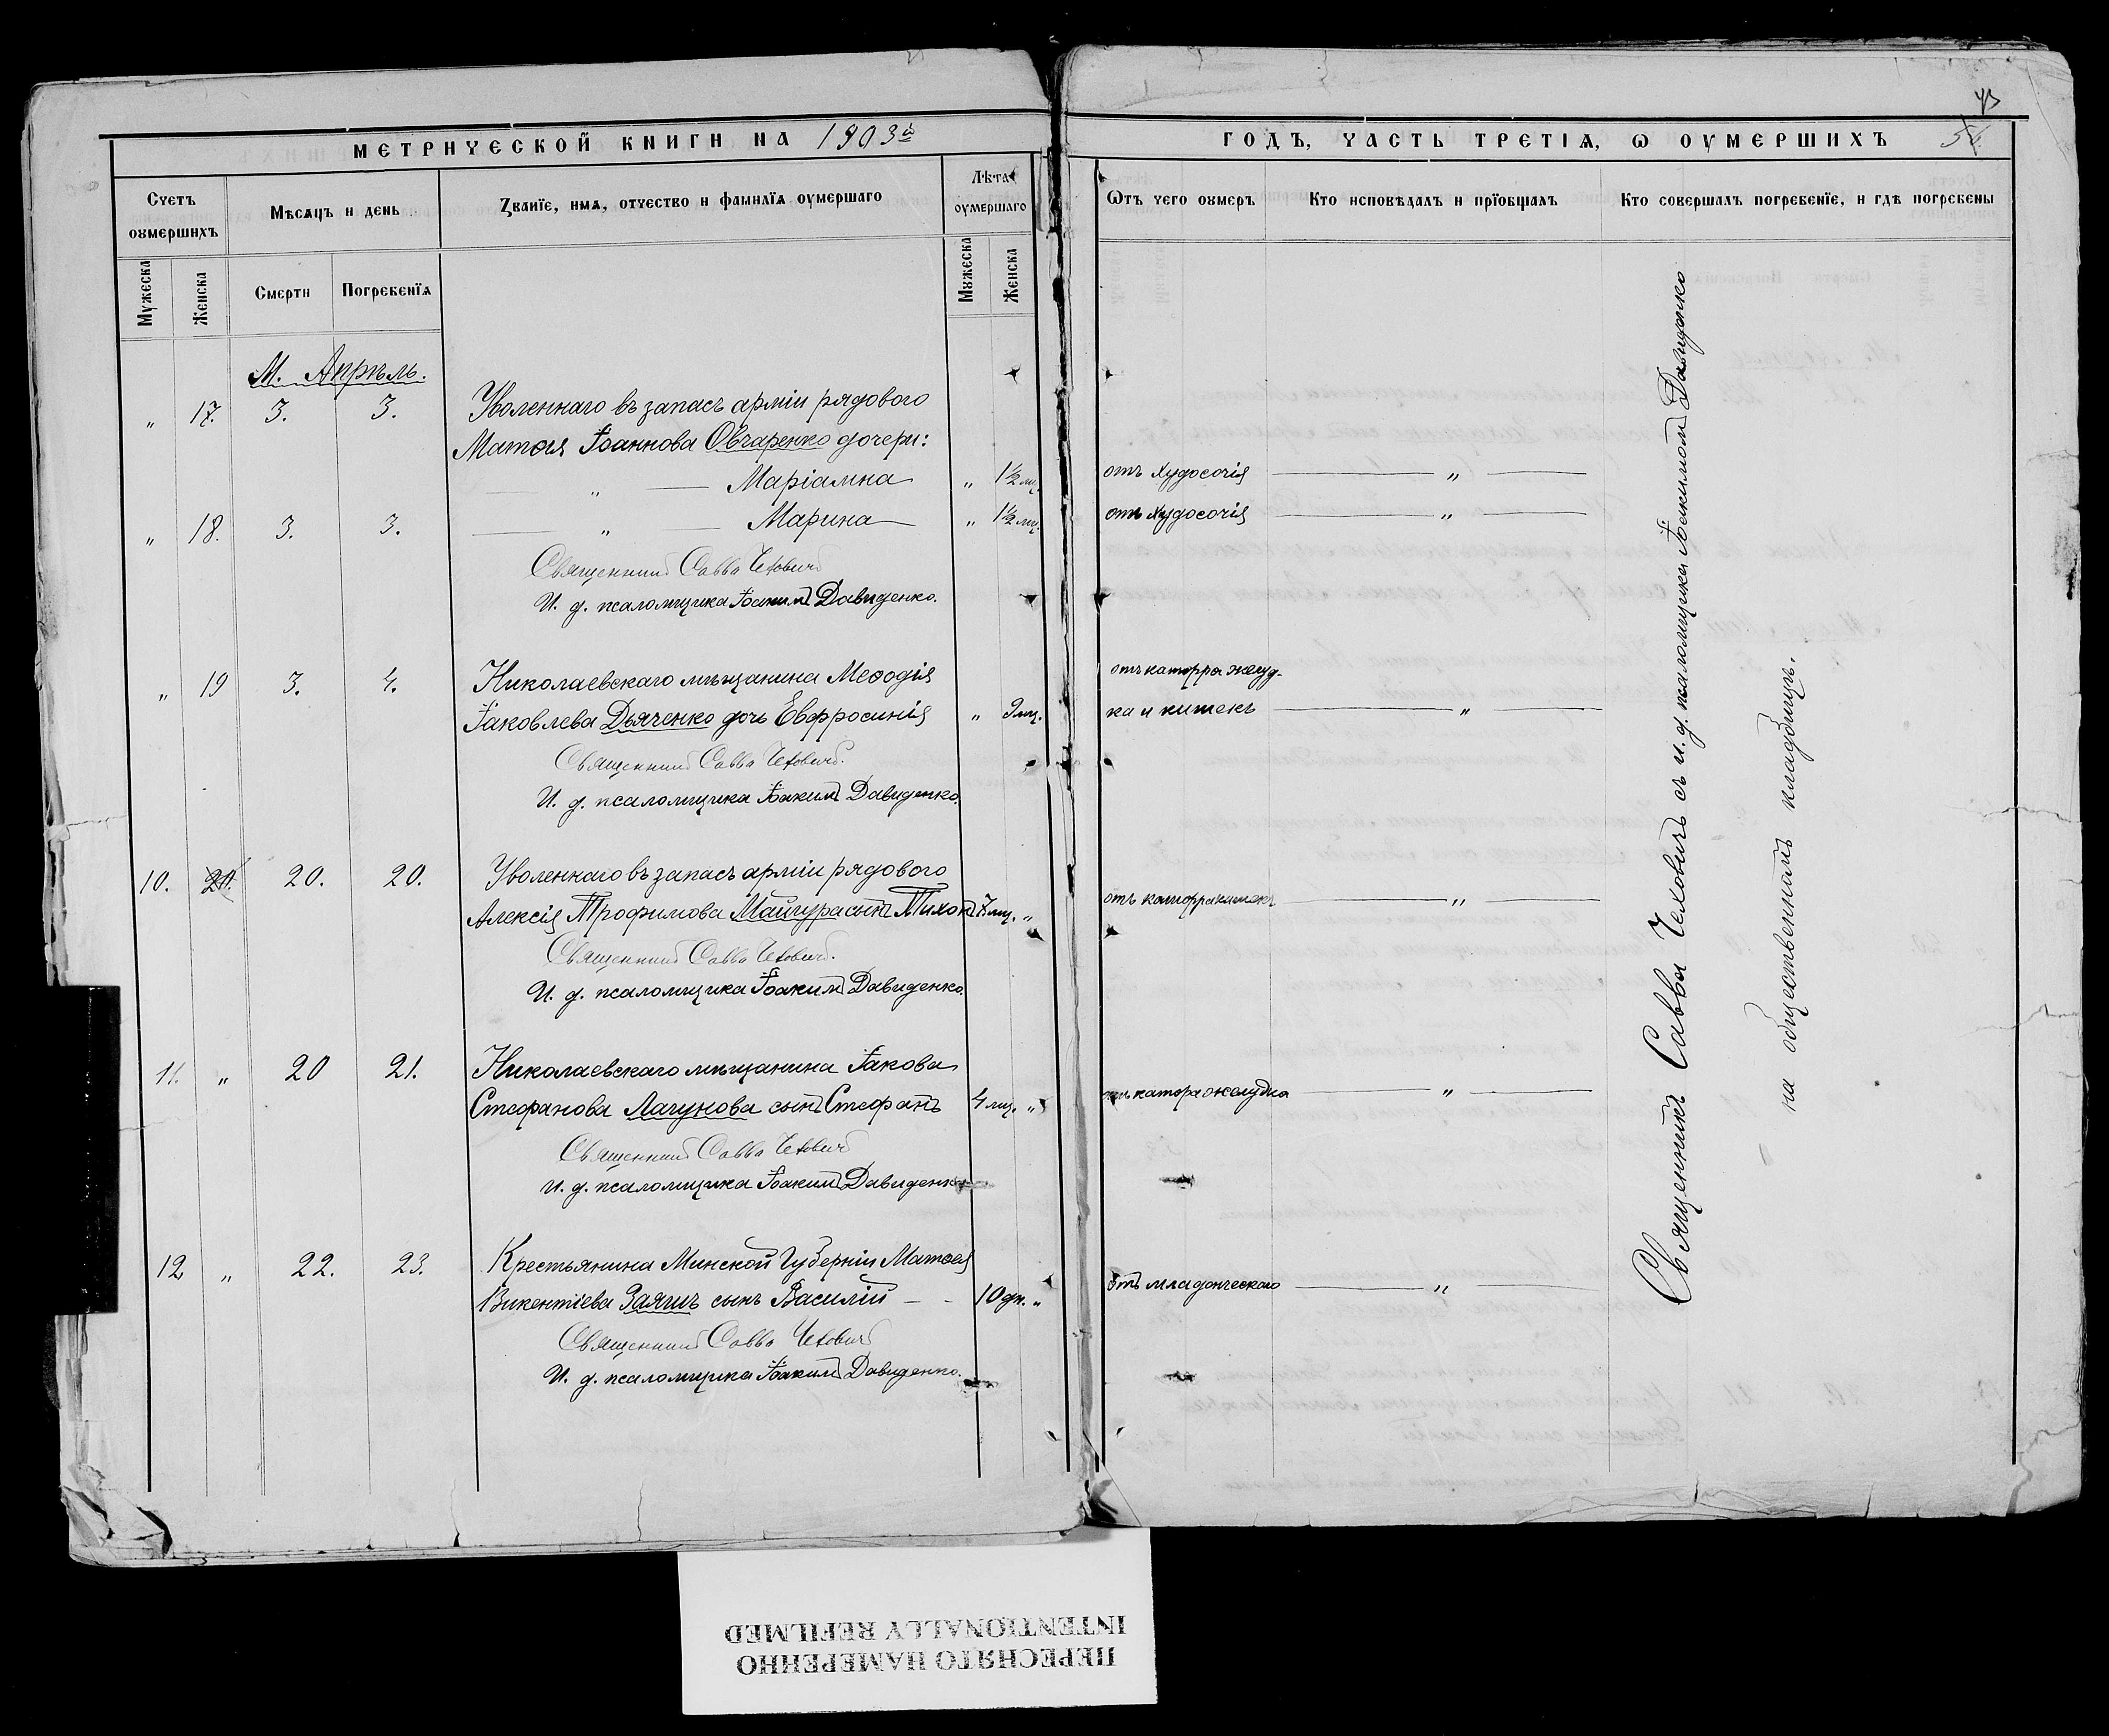 МЕТРИЧЕСКОЙ КНИГИ НА 1903й
Счетъ оумершихъ
Мѣсяцъ и день
Званїе, имя, отчество и фамилїя оумершаго
Лѣта оумершаго
Мужеска
Женска
Смерти
Погребенїя
Мужеска
Женска
М. Апрѣль.
„ 17. 3. 3. Уволеннаго въ запасъ арміи рядового
Матѳея Іоаннова Овчаренко дочери:
„ Маріамна „ 1½ мц.
„ 18. 3. 3. „ Марина „ 1½ мц.
Священникъ Савва Чеховичъ
И. д. псаломщика Іоакимъ Давиденко.
„ 19 3. 4. Николаевскаго мѣщанина Меѳодія
Іаковлева Дьяченко дочь Евфросинія „ 9 мц.
Священникъ Савва Чеховичъ.
И. д. псаломщика Іоакимъ Давиденко.
10. 20. 20. 20. Уволеннаго въ запасъ арміи рядового
Алексія Трофимова Майгура сынъ Тихонъ 7 мц. „
Священникъ Савва Чеховичъ.
И. д. псаломщика Іоакимъ Давиденко.
11. „ 20 21. Николаевскаго мѣщанина Іакова
Стефанова Лагунова сынъ Стефанъ 4 мц. „
Священникъ Савва Чеховичъ
И. д. псаломщика Іоакимъ Давиденко
12 „ 22. 23. Крестьянина Минской Губерніи Матѳея
Викентіева Заяцъ сынъ Василій 10 дн. „
Священникъ Савва Чеховичъ
И. д. псаломщика Іоакимъ Давиденко.
43
ГОДЪ, ЧАСТЬ ТРЕТІЯ, Ѡ ОУМЕРШИХЪ
Ѿтъ чего оумеръ
Кто исповѣдалъ и прїобщалъ
Кто совершалъ погребенїе, и гдѣ погребены
отъ худосочія „
отъ худосочія „
отъ катарра желуд-
ка и кишекъ „
отъ катарра кишекъ „
отъ катара желудка „
отъ младенческаго „
Священникъ Савва Чеховичъ съ и. д. псаломщика Іоакимомъ Давиденко
на общественномъ кладбищѣ.
ПЕРЕСНЯТО НАМЕРЕННО
INTENTIONALLY REFILMED